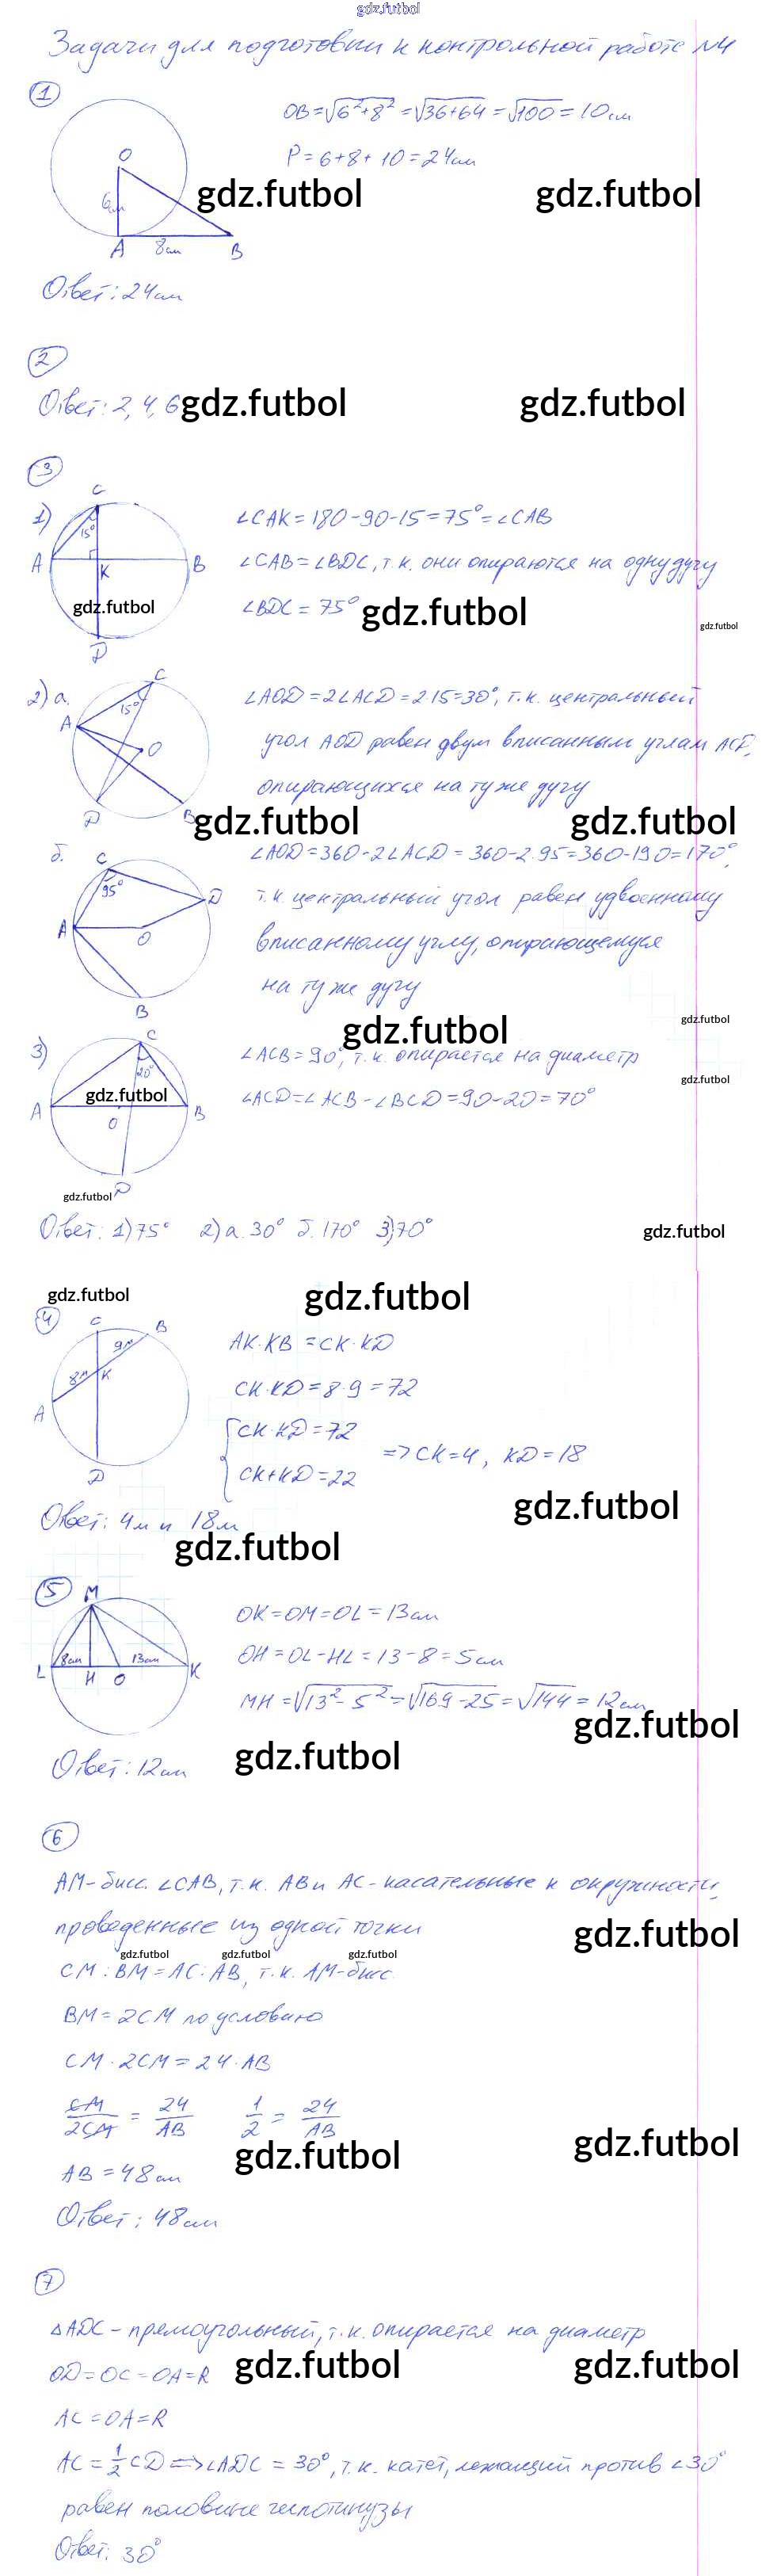 gdz.futbol
Задачи для подготовки к контрольной работе №4
1
OB=√6²+8² =√36+64 =√100 = 10см
P=6+8+10=24см
O
6см
gdz.futbol gdz.futbol
A 8см B
Ответ: 24см
2
Ответ: 2, 4, 6
gdz.futbol gdz.futbol
3
1)
C
15°
A K B
D
∠CAK = 180-90-15=75°=∠CAB
∠CAB=∠BDC, т.к. они опираются на одну дугу
gdz.futbol
∠BDC = 75°
gdz.futbol
gdz.futbol
2) а.
C
15°
A O
D B
∠AOD=2∠ACD=2·15=30°, т.к. центральный
угол AOD равен двум вписанным углам
опирающихся на ту же дугу
gdz.futbol gdz.futbol
б.
C
95°
D
A O
B
∠AOD=360-2∠ACD = 360-2·95=360-190=170°,
т.к. центральный угол равен удвоенному
вписанному углу, опирающемуся
на ту же дугу
gdz.futbol gdz.futbol
3)
C
20°
A O B
D
∠ACB=90°, т.к. опирается на диаметр
gdz.futbol
gdz.futbol
∠ACD=∠ACB-∠BCD=90-20=70°
gdz.futbol
Ответ: 1) 75° 2) а. 30° б. 170° 3) 70°
gdz.futbol
gdz.futbol gdz.futbol
4
C B
9м
8м K
A
D
AK·KB = CK·KD
CK·KD=8·9=72
CK·KD=72
CK+KD=22
=> CK=4, KD=18
gdz.futbol
Ответ: 4м и 18м
gdz.futbol
5
M
8см 13см
L H O K
OK=OM=OL=13см
OH=OL-HL=13-8=5см
MH=√13²-5²=√169-25=√144=12см
gdz.futbol
Ответ: 12см
gdz.futbol
6
AM-бисс. ∠CAB, т.к. AB и AC-касательные к окружности,
проведенные из одной точки
gdz.futbol
gdz.futbol gdz.futbol gdz.futbol
CM:BM=AC:AB, т.к. AM-бисс.
BM=2CM по условию
CM:2CM=24:AB
CM/2CM = 24/AB 1/2 = 24/AB
gdz.futbol gdz.futbol
AB=48см
Ответ: 48см
7
△ADC-прямоугольный, т.к. опирается на диаметр
OD=OC=OA=R
gdz.futbol gdz.futbol
AC=OA=R
AC=1/2CD=>∠ADC=30°, т.к. катет, лежащий против ∠30°
равен половине гипотинузы
Ответ: 30°